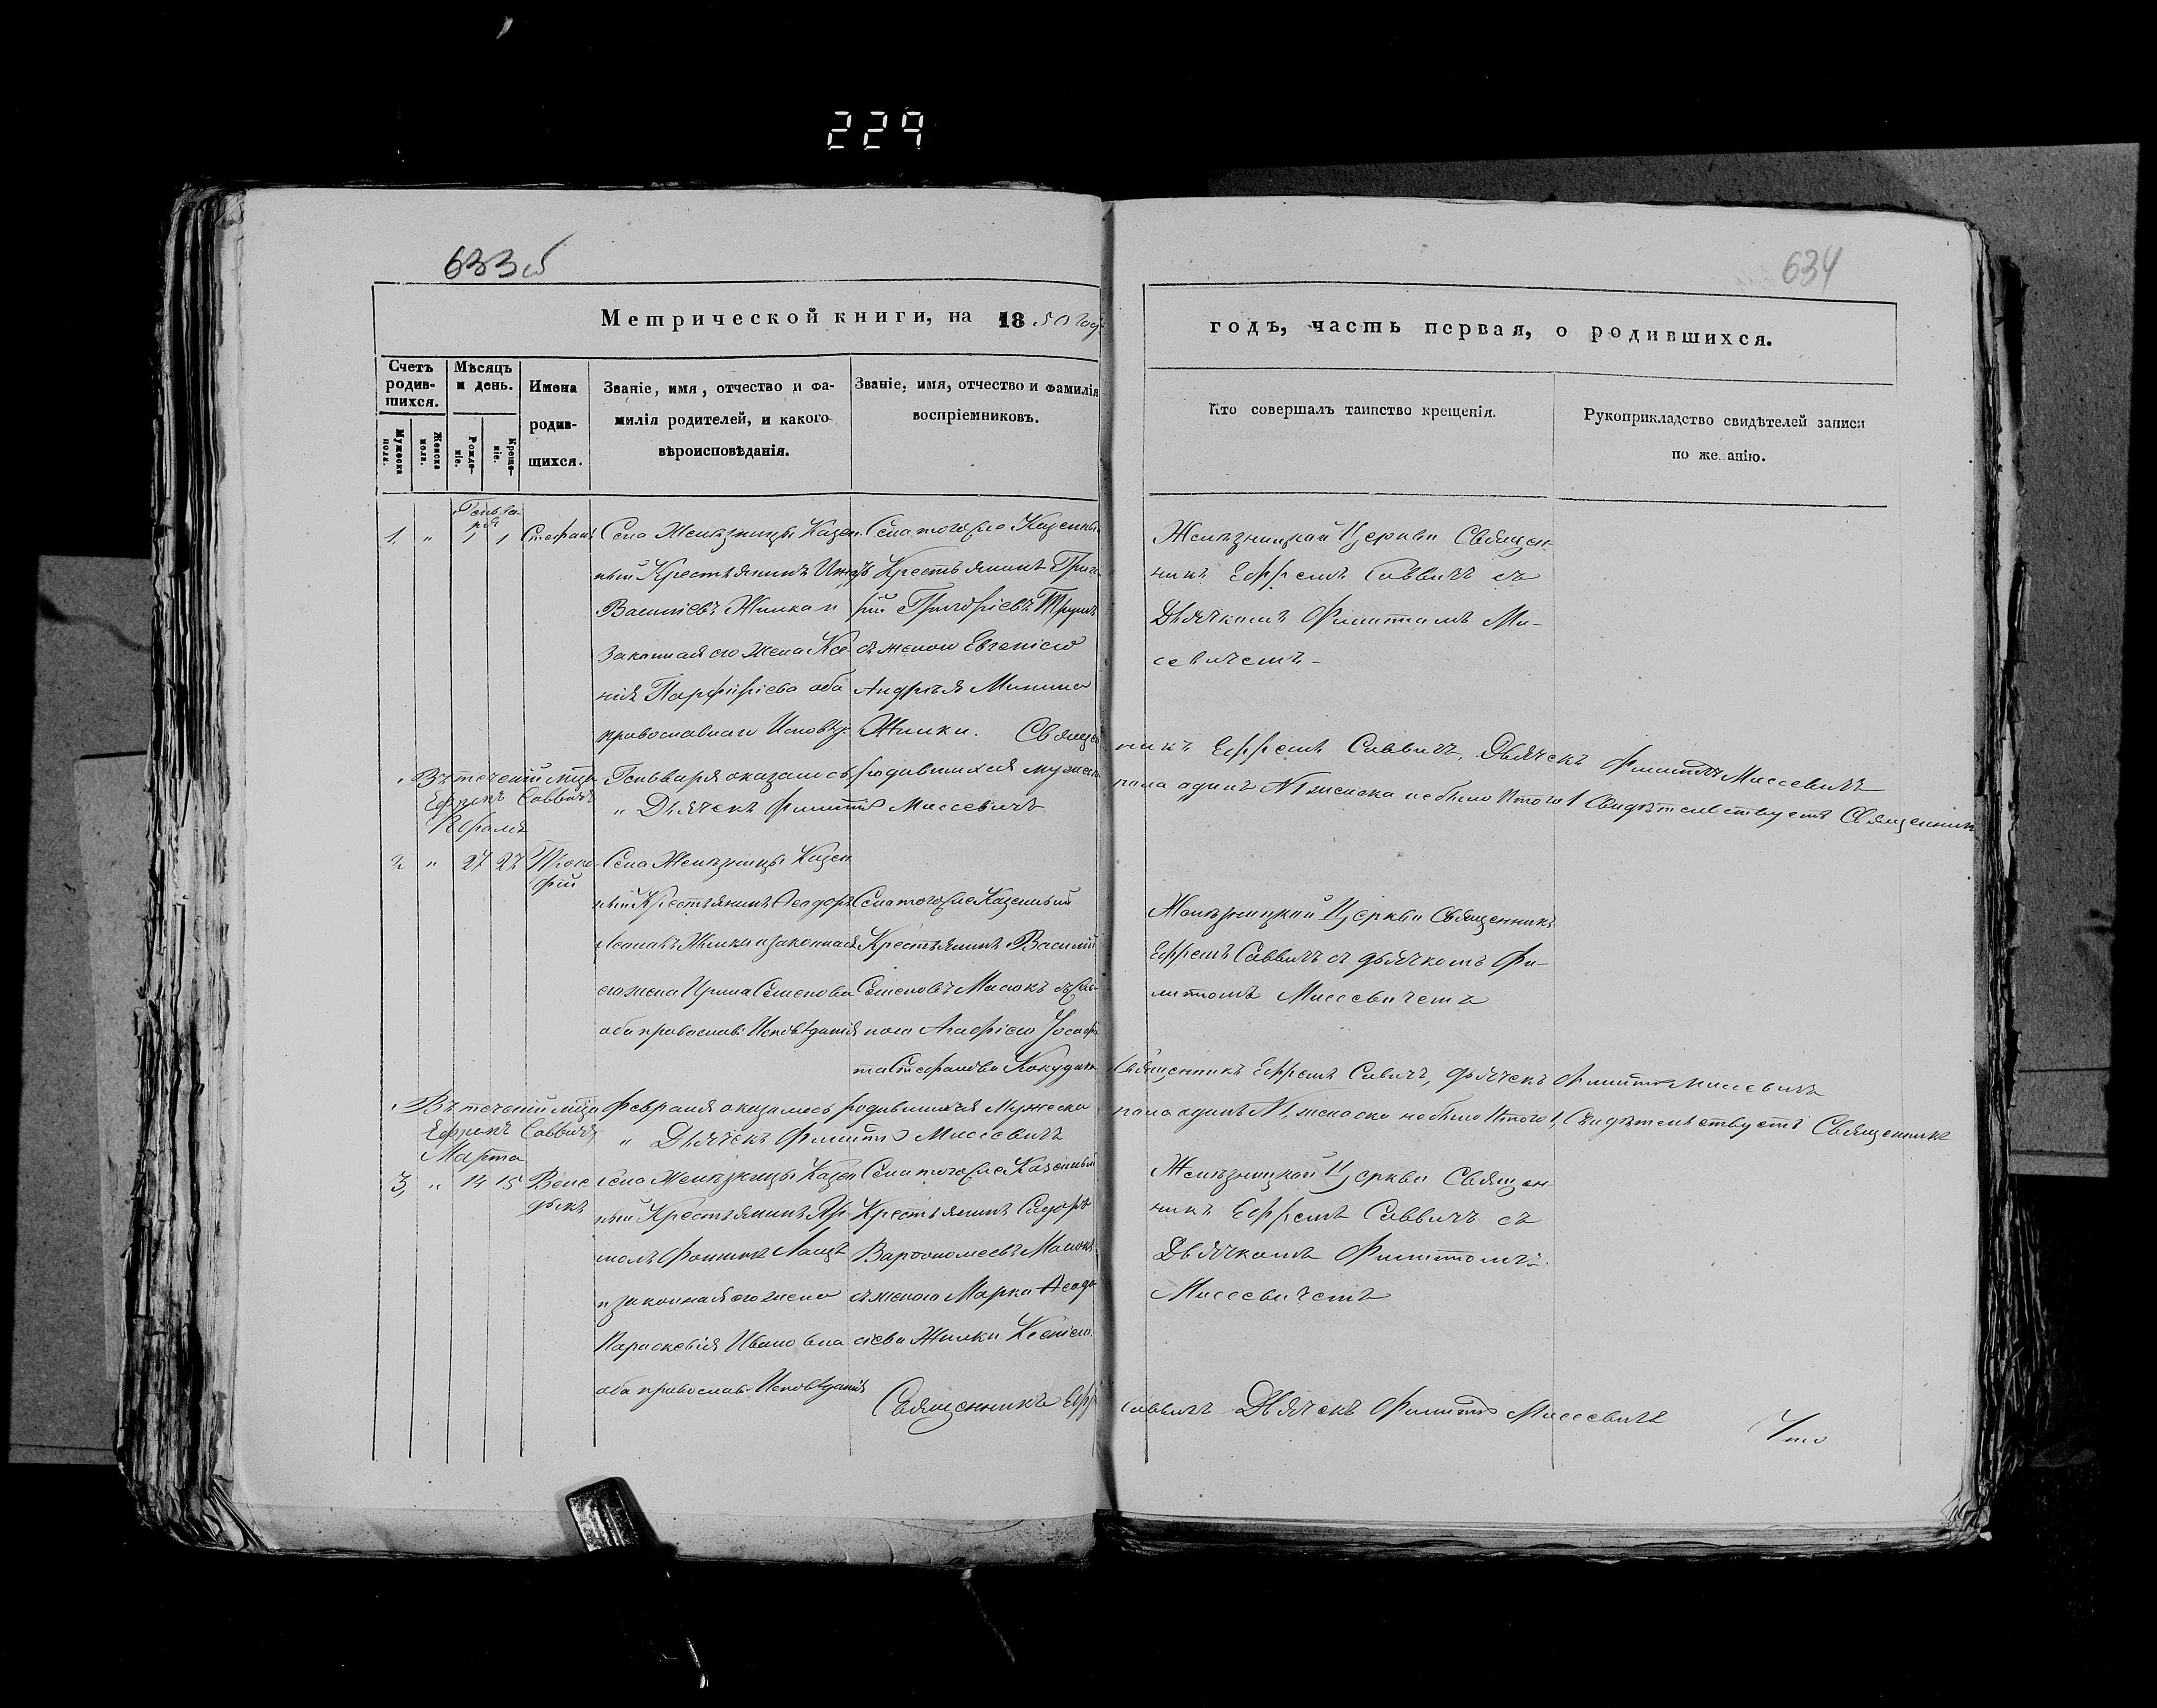 229
633 об
634
Метрической книги, на 1850 год
годъ, часть первая, о родившихся.
Счетъ родив-шихся.
Мужеска пола.
Женска пола.
Мѣсяцъ и день.
Рожде-ніе.
Креще-ніе.
Имена родив-шихся.
Званіе, имя, отчество и фа-
милія родителей, и какого
вѣроисповѣданія.
Званіе, имя, отчество и фамилія
воспріемниковъ.
Кто совершалъ таинство крещенія.
Рукоприкладство свидѣтелей записи
по же анію.
Генва-
ря
1. " 1 1 Стефанъ
Села Желѣзницы Казен-
ный Крестьянинъ
Василіевъ Жилка и
законная его жена Ксе-
нія Парфиріева оба
православнаго Исповѣд.
Села тогоже Казенны
Крестьянинъ Григо
рій Григоріевъ
съ женою Евгеніею
Андрея Минина
Жилки. Священ
Желѣзницкой Церкви Священ-
никъ Ефремъ Саввичъ съ
Дьячкомъ Филиппомъ Ми-
севичемъ
никъ Ефремъ Саввичъ, Дьячекъ Филиппъ Мисевичъ
Въ теченіи мца Генваря оказалось родившихся мужеска
пола одинъ N1 женска небыло Итого 1 Свидѣтельствуетъ Священникъ
Ефремъ Саввичъ " Дьячекъ Филиппъ Мисевичъ
Февраля
2 " 27 27 Проко-
фій
Села Желѣзницы Казен
ный Крестьянинъ Ѳеодоръ
Жилка и законная
его жена Ирина Семенова
оба православ: Исповѣданія
Села тогоже Казенный
Крестьянинъ Василій
Семеновъ Масюкъ съ
ною Агафіею
та Стефанова
Желѣзницкой Церкви Священникъ
Ефремъ Саввичъ съ дьячкомъ Фи-
липпомъ Мисевичемъ
Священникъ Ефремъ Савичъ, дьячекъ Филиппъ Мисевичъ
Въ теченіи мца Февраля оказалось родившихся Мужеска
пола одинъ N1 женска небыло Итого 1, Свидѣтельствуетъ Священникъ
Ефремъ Саввичъ, " Дьячекъ Филиппъ Мисевичъ
Марта
3, " 14 15 Вене
дыктъ
Села Желѣзницы Казен
ный Крестьянинъ Яр-
молъ Фоминъ
и законная его жена
Параскевія Иванова
оба православ: Исповѣданія
Села тогоже Казенный
Крестьянинъ Сидоръ
Варѳоломеевъ Масюкъ
съ женою Марка Ѳеодо
сіева Жилки Ксеніею.
Желѣзницкой Церкви Священ
никъ Ефремъ Саввичъ съ
Дьячкомъ Филиппомъ
Мисевичемъ
Священникъ Ефр
Саввичъ Дьячекъ Филиппъ Мисевичъ